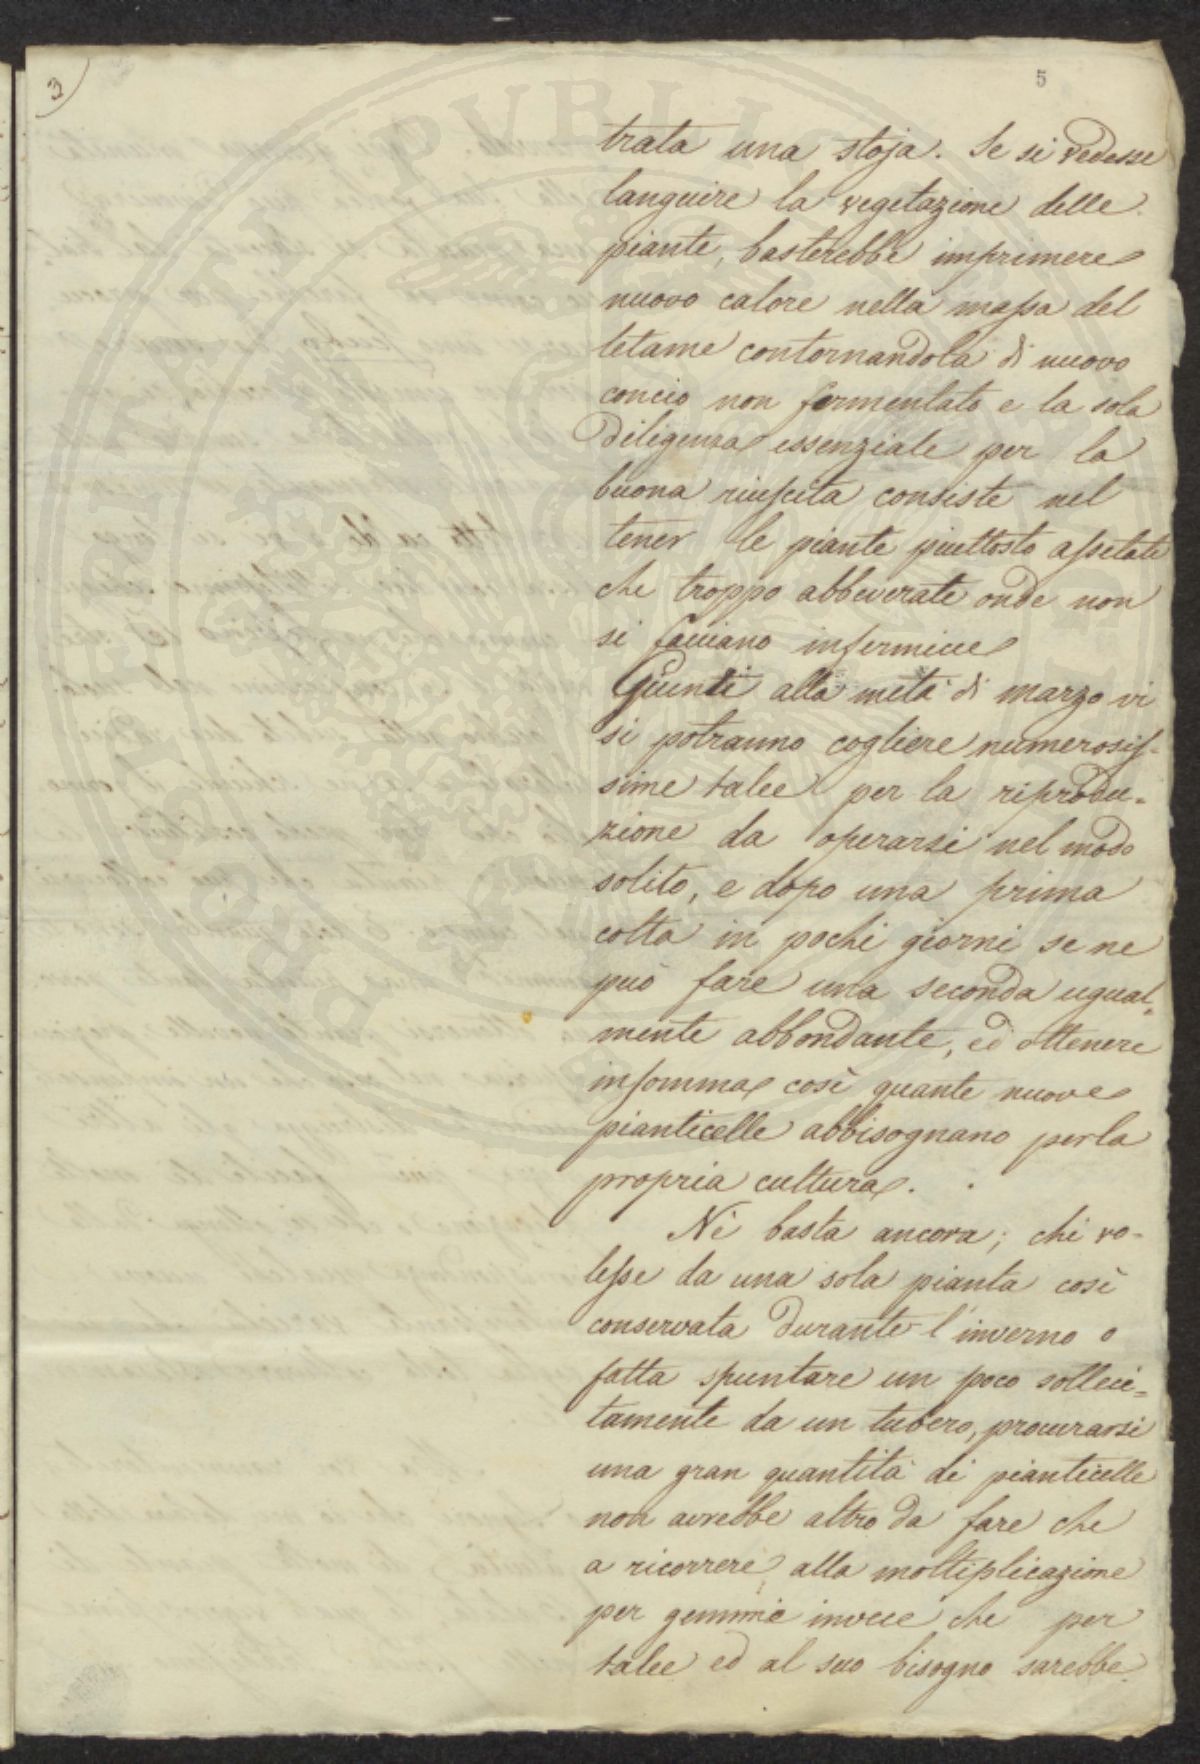 3)
5
trata una stoja. Se si vedesse
languire la vegetazione delle
piante, basterebbe imprimere
nuovo calore nella massa del
letame contornandola di nuovo
concio non fermentato e la sola
diligenza essenziale per la
buona riuscita consiste nel
tener le piante piuttosto assetate
che troppo abbeverate onde non
si facciano infermicce
Giunti alla metà di marzo vi
si potranno cogliere numerosis-
sime talee per la riprodu=
zione da operarsi nel modo
solito, e dopo una prima
colta in pochi giorni se ne
può fare una seconda ugual=
mente abbondante, ed ottenere
insomma così quante nuove
pianticelle abbisognano per la
propria cultura.
Nè basta ancora; chi vo-
lesse da una sola pianta così
conservata durante l'inverno o
fatta spuntare un poco solleci=
tamente da un tubero, procurarsi
una gran quantità di pianticelle
non avrebbe altro da fare che
a ricorrere alla moltiplicazione
per gemme invece che per
talee ed al suo bisogno sarebbe